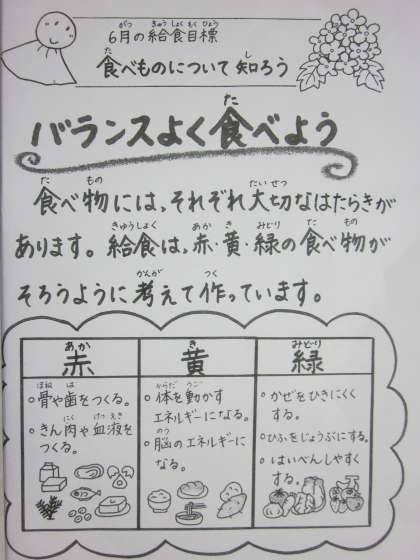 6月の給食目標
食べものについて知ろう
バランスよく食べよう
食べ物には、それぞれ大切なはたらきが
あります。給食は、赤・黄・緑の食べ物が
そろうように考えて作っています。
赤
・骨や歯をつくる。
・きん肉や血液を
つくる。
黄
・体を動かす
エネルギーになる。
・脳のエネルギーに
なる。
緑
・かぜをひきにくく
する。
・ひふをじょうぶにする。
・はいべんしやすく
する。